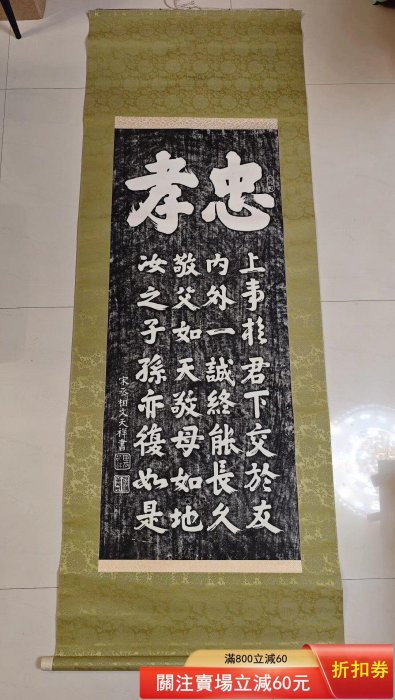 忠孝
上事於君下交於友
内外一誠終能長久
敬父如天敬母如地
汝之子孫亦復如是
宋丞相文天祥書
滿800立減60
關注賣場立減60元
折扣券